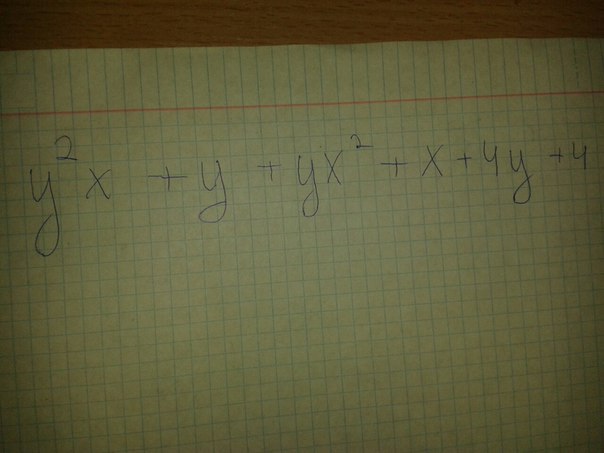 y²x + y + yx² + x + 4y + 4